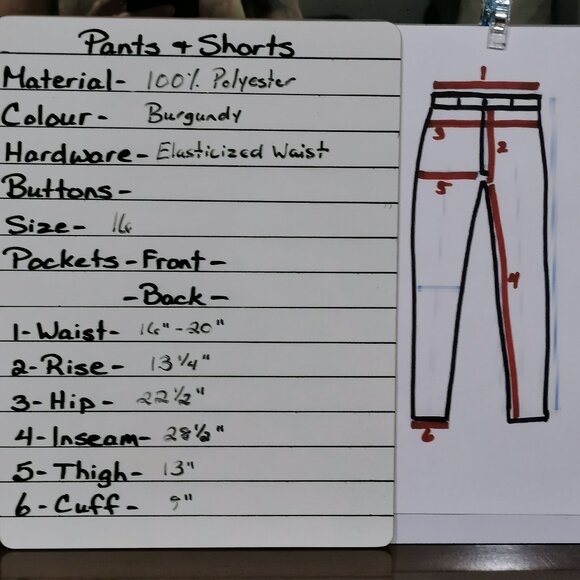 Pants & Shorts
Material- 100% Polyester
Colour- Burgundy
Hardware- Elasticized Waist
Buttons-
Size- 16
Pockets-Front-
-Back-
1-Waist- 16"-20"
2-Rise- 13 1/4"
3-Hip- 22 1/2"
4-Inseam- 28 1/2"
5-Thigh- 13"
6-Cuff- 9"
1
3
2
5
4
6